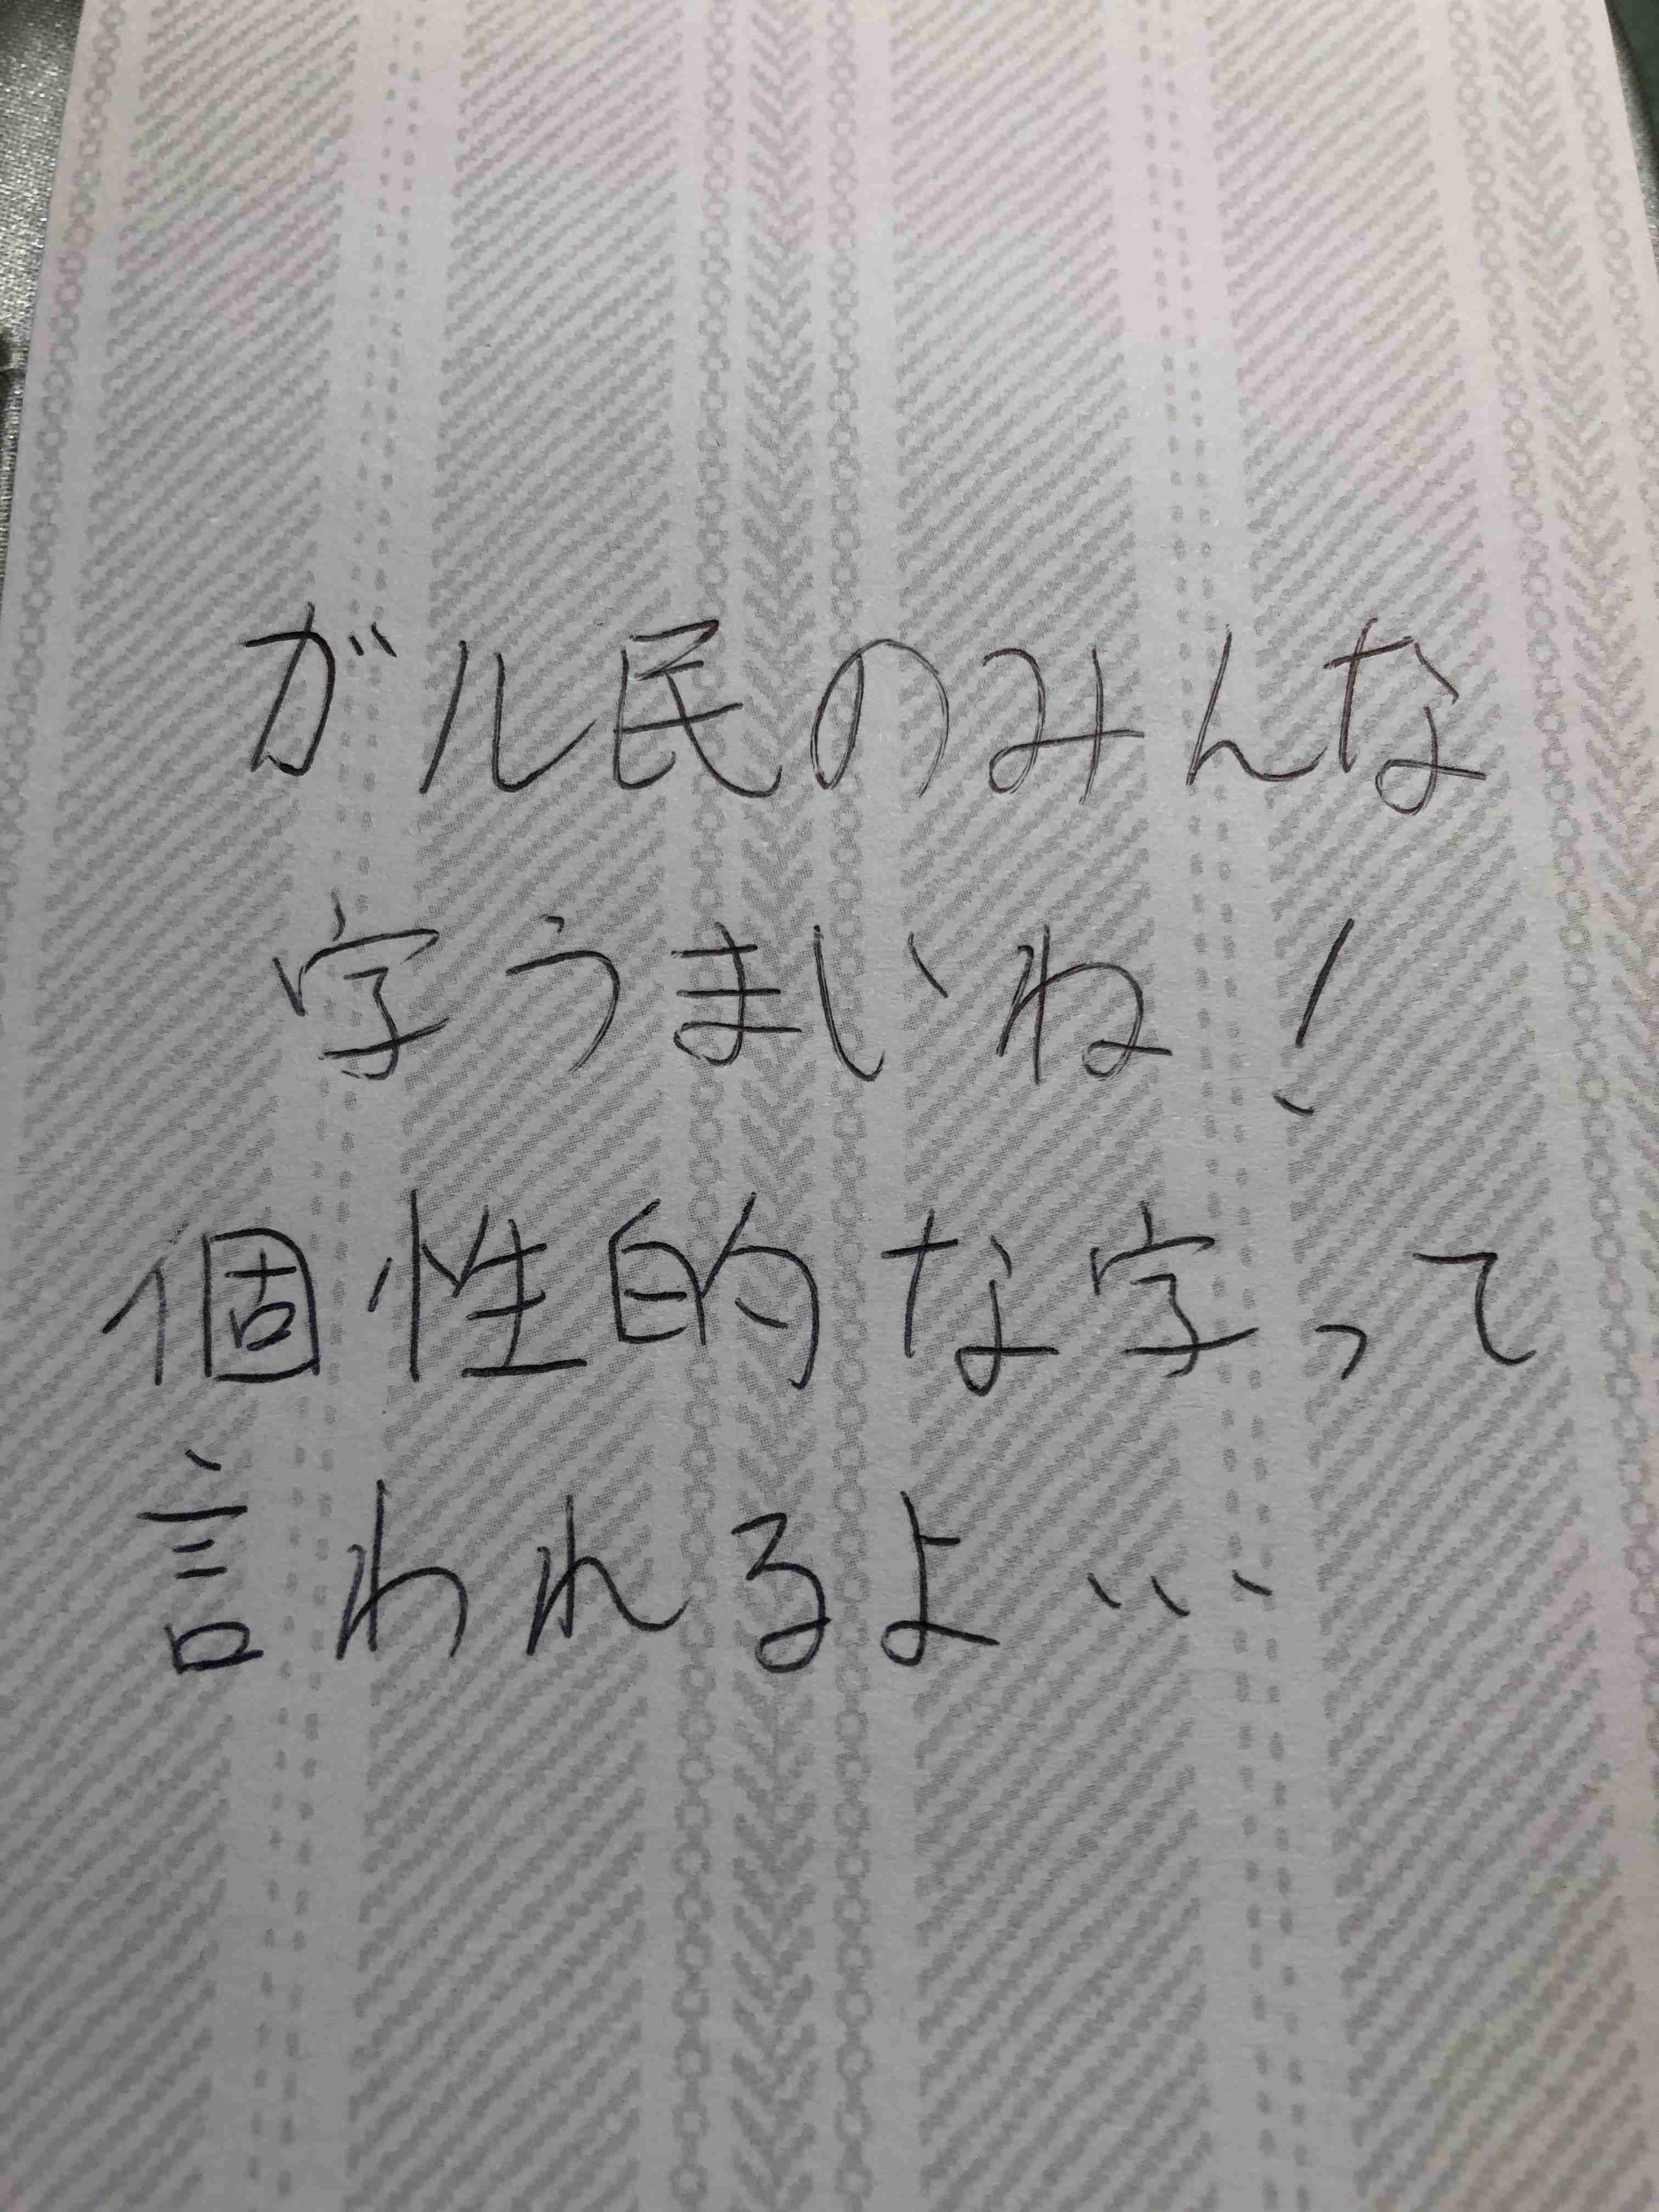 ガル民のみんな
字うまいね!
個性的な字って
言われるよ…